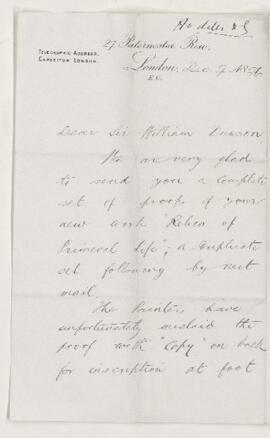 Hodder & S
27 Paternoster Row,
TELEGRAPHIC ADDRESS,
EXPOSITOR LONDON.
London, Dec 9 1896
E.C.
Dear Sir William Dawson,
We are very glad
to send you a complete
set of proofs of your
new work "Relics of
Primeval Life"; a duplicate
set following by next
mail.
The Printers have
unfortunately mislaid the
proof with "copy" on back
for inscription at foot